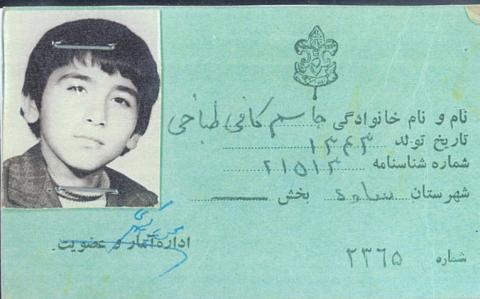 نام و نام خانوادگی جاسم کافی طباخی
تاریخ تولد ۱۳۴۳
شماره شناسنامه ۲۱۵۱۳
شهرستان ساوه بخش
اداره آمار و عضویت.
شماره ۲۳۶۵